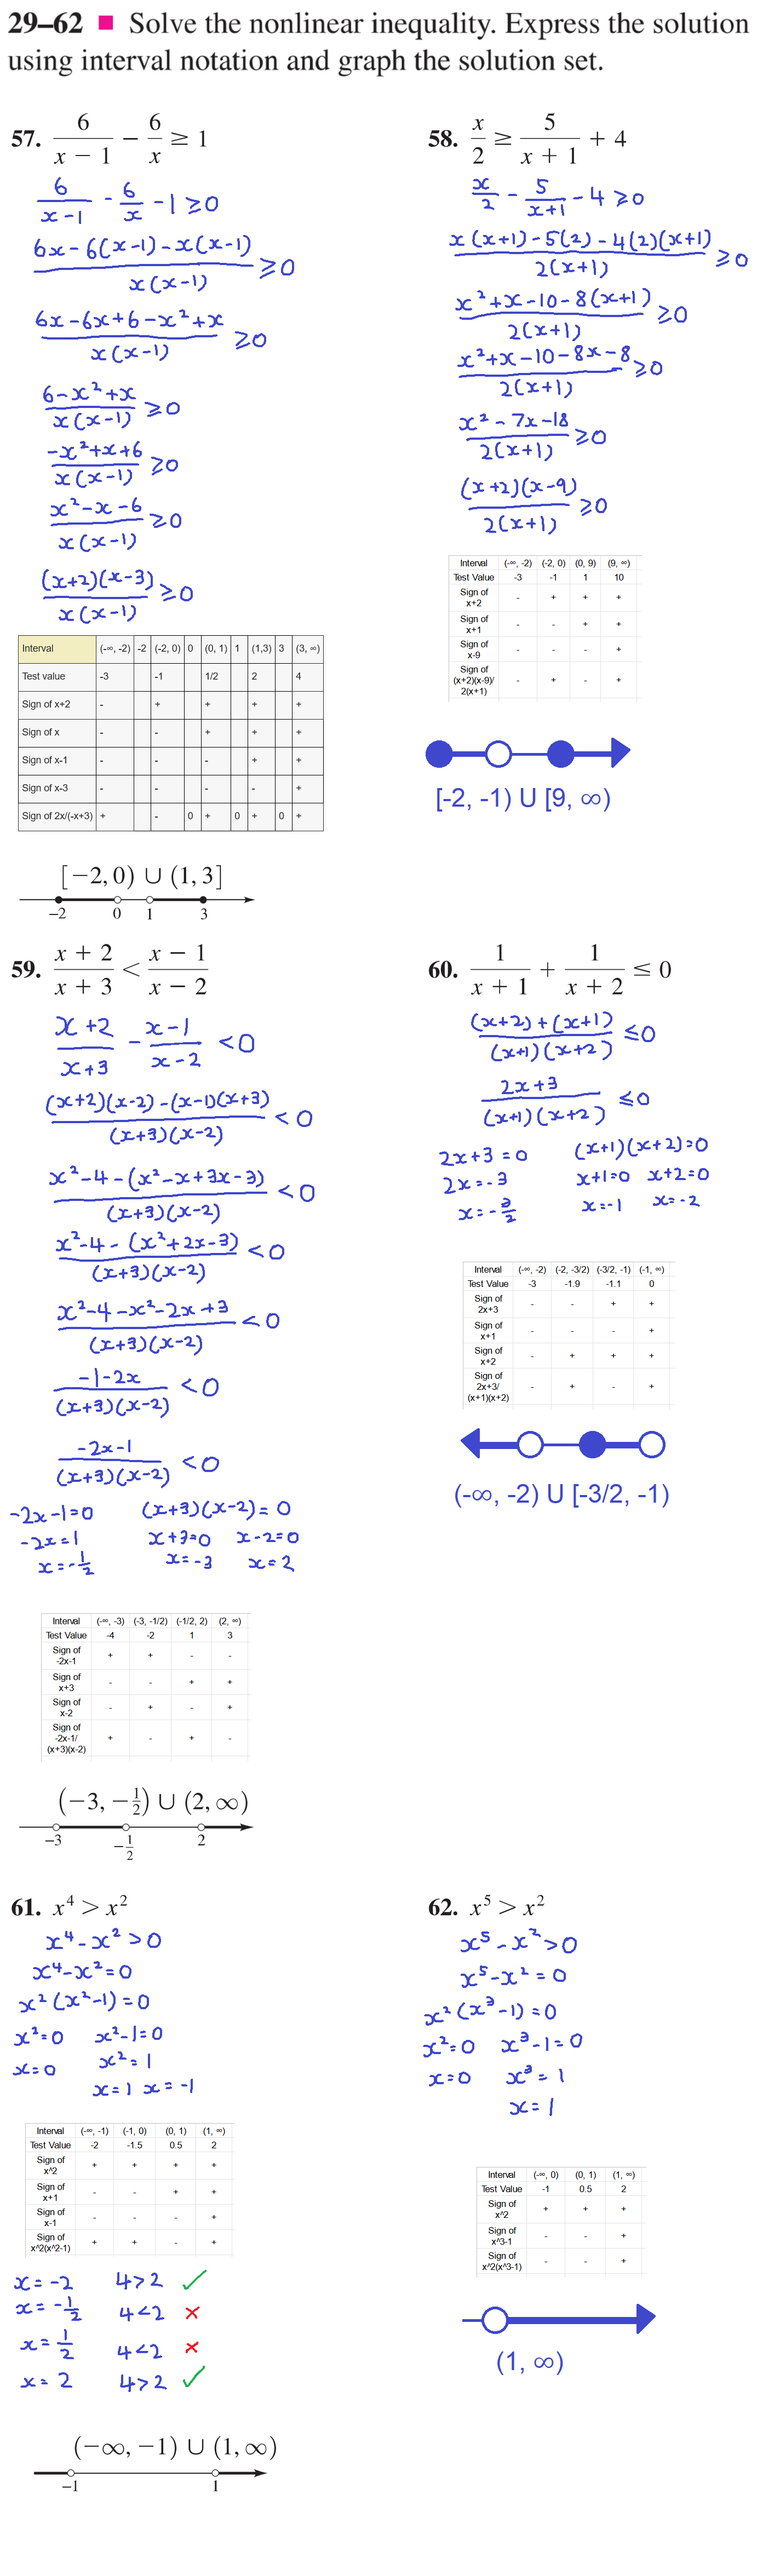 29–62 ■ Solve the nonlinear inequality. Express the solution
using interval notation and graph the solution set.
57. 6/(x − 1) − 6/x ≥ 1
6/(x-1) - 6/x - 1 ≥ 0
(6x - 6(x-1) - x(x-1))/(x(x-1)) ≥ 0
(6x - 6x + 6 - x² + x)/(x(x-1)) ≥ 0
(6 - x² + x)/(x(x-1)) ≥ 0
(-x² + x + 6)/(x(x-1)) ≥ 0
(x² - x - 6)/(x(x-1)) ≥ 0
((x+2)(x-3))/(x(x-1)) ≥ 0
Interval (-∞, -2) -2 (-2, 0) 0 (0, 1) 1 (1,3) 3 (3, ∞)
Test value -3 -1 1/2 2 4
Sign of x+2 - + + + +
Sign of x - - + + +
Sign of x-1 - - - + +
Sign of x-3 - - - - +
Sign of 2x/(-x+3) + - 0 + 0 + 0 +
[−2, 0) ∪ (1, 3]
−2 0 1 3
58. x/2 ≥ 5/(x + 1) + 4
x/2 - 5/(x+1) - 4 ≥ 0
(x(x+1) - 5(2) - 4(2)(x+1))/(2(x+1)) ≥ 0
(x² + x - 10 - 8(x+1))/(2(x+1)) ≥ 0
(x² + x - 10 - 8x - 8)/(2(x+1)) ≥ 0
(x² - 7x - 18)/(2(x+1)) ≥ 0
((x+2)(x-9))/(2(x+1)) ≥ 0
Interval (-∞, -2) (-2, 0) (0, 9) (9, ∞)
Test Value -3 -1 1 10
Sign of
x+2 - + + +
Sign of
x+1 - - + +
Sign of
x-9 - - - +
Sign of
(x+2)(x-9)/ - + - +
2(x+1)
[-2, -1) U [9, ∞)
59. (x + 2)/(x + 3) < (x − 1)/(x − 2)
(x+2)/(x+3) - (x-1)/(x-2) < 0
((x+2)(x-2) - (x-1)(x+3))/((x+3)(x-2)) < 0
(x² - 4 - (x² - x + 3x - 3))/((x+3)(x-2)) < 0
(x² - 4 - (x² + 2x - 3))/((x+3)(x-2)) < 0
(x² - 4 - x² - 2x + 3)/((x+3)(x-2)) < 0
(-1 - 2x)/((x+3)(x-2)) < 0
(-2x - 1)/((x+3)(x-2)) < 0
-2x-1=0 (x+3)(x-2)=0
-2x=1 x+3=0 x-2=0
x=-1/2 x=-3 x=2
Interval (-∞, -3) (-3, -1/2) (-1/2, 2) (2, ∞)
Test Value -4 -2 1 3
Sign of
-2x-1 + + - -
Sign of
x+3 - - + +
Sign of
x-2 - + - +
Sign of
-2x-1/ + - + -
(x+3)(x-2)
(−3, −1/2) ∪ (2, ∞)
−3 −1/2 2
60. 1/(x + 1) + 1/(x + 2) ≤ 0
((x+2)+(x+1))/((x+1)(x+2)) ≤ 0
(2x+3)/((x+1)(x+2)) ≤ 0
2x+3=0 (x+1)(x+2)=0
2x=-3 x+1=0 x+2=0
x=-3/2 x=-1 x=-2
Interval (-∞, -2) (-2, -3/2) (-3/2, -1) (-1, ∞)
Test Value -3 -1.9 -1.1 0
Sign of
2x+3 - - + +
Sign of
x+1 - - - +
Sign of
x+2 - + + +
Sign of
2x+3/ - + - +
(x+1)(x+2)
(-∞, -2) U [-3/2, -1)
61. x⁴ > x²
x⁴ - x² > 0
x⁴ - x² = 0
x²(x² - 1) = 0
x²=0 x²-1=0
x=0 x²=1
x=1 x=-1
Interval (-∞, -1) (-1, 0) (0, 1) (1, ∞)
Test Value -2 -1.5 0.5 2
Sign of
x^2 + + + +
Sign of
x+1 - - + +
Sign of
x-1 - - - +
Sign of
x^2(x^2-1) + + - +
x=-2 4>2 ✓
x=-1/2 4<2 ×
x=1/2 4<2 ×
x=2 4>2 ✓
(−∞, −1) ∪ (1, ∞)
−1 1
62. x⁵ > x²
x⁵ - x² > 0
x⁵ - x² = 0
x²(x³ - 1) = 0
x²=0 x³-1=0
x=0 x³=1
x=1
Interval (-∞, 0) (0, 1) (1, ∞)
Test Value -1 0.5 2
Sign of
x^2 + + +
Sign of
x^3-1 - - +
Sign of
x^2(x^3-1) - - +
(1, ∞)